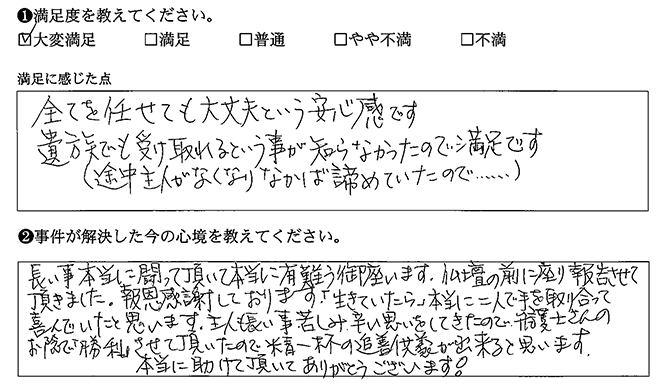 ❶満足度を教えてください。
☑大変満足 □満足 □普通 □やや不満 □不満
満足に感じた点
全てを任せても大丈夫という安心感です
遺族でも受け取れるという事が知らなかったので満足です
(途中主人がなくなりなかば諦めていたので……)
❷事件が解決した今の心境を教えてください。
長い事本当に闘って頂いて本当に有難う御座います。仏壇の前に座り報告させて
頂きました。報恩感謝しております「生きていたら」本当に二人で手を取り合って
喜んでいたと思います。主人も長い事苦しみ辛い思いをしてきたので弁護士さんの
お陰で「勝利」させて頂いたので精一杯の追善供養が出来ると思います。
本当に助けて頂いてありがとうございます!